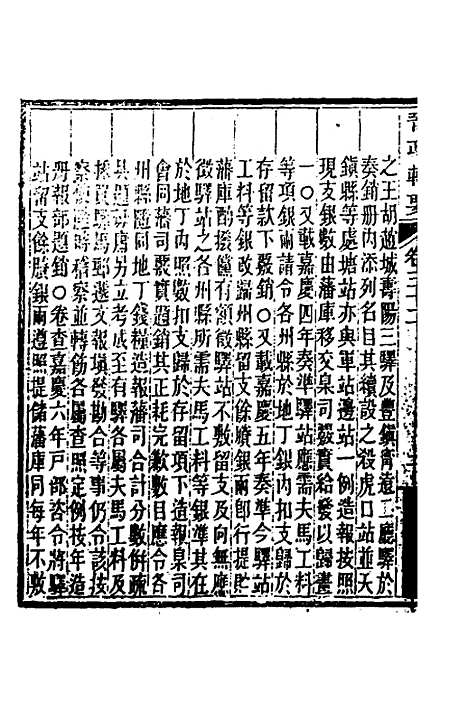 晉政輯要 卷三十二
之王胡趙城霍陽三驛及豐鎮甯遠二廳驛於
奏銷册内添列名目其續設之殺虎口站並天
鎮縣等處塘站亦與軍站邊站一例造報按照
現支銀數由藩庫移交臬司覈實給發以歸畫
一〇又載嘉慶四年奏準驛站應需夫馬工料
等項銀兩請令各州縣於地丁銀内扣支歸於
存留款下覈銷〇又載嘉慶五年奏準今驛站
工料等銀改歸州縣留支餘賸銀兩卽行提貯
藩庫酌撥儻有額設驛站不敷留支及向無應
徵驛站之各州縣所需夫馬工料等銀準其
於地丁内照數扣支歸於存留項下造報臬司
會同藩司覈實題銷其正耗完欠數目應令各
州縣隨同地丁錢糧造報藩司合計分數併疏
具題胡另立考成至有驛各屬夫馬工料及
採買驛馬郵遞文報填發勘合等事仍令該按
察使隨時稽察並轉飭各屬查照定例按年造
册報部題銷〇卷查嘉慶六年戸部咨令將驛
站留支餘賸銀兩遵照提儲藩庫同每年不敷